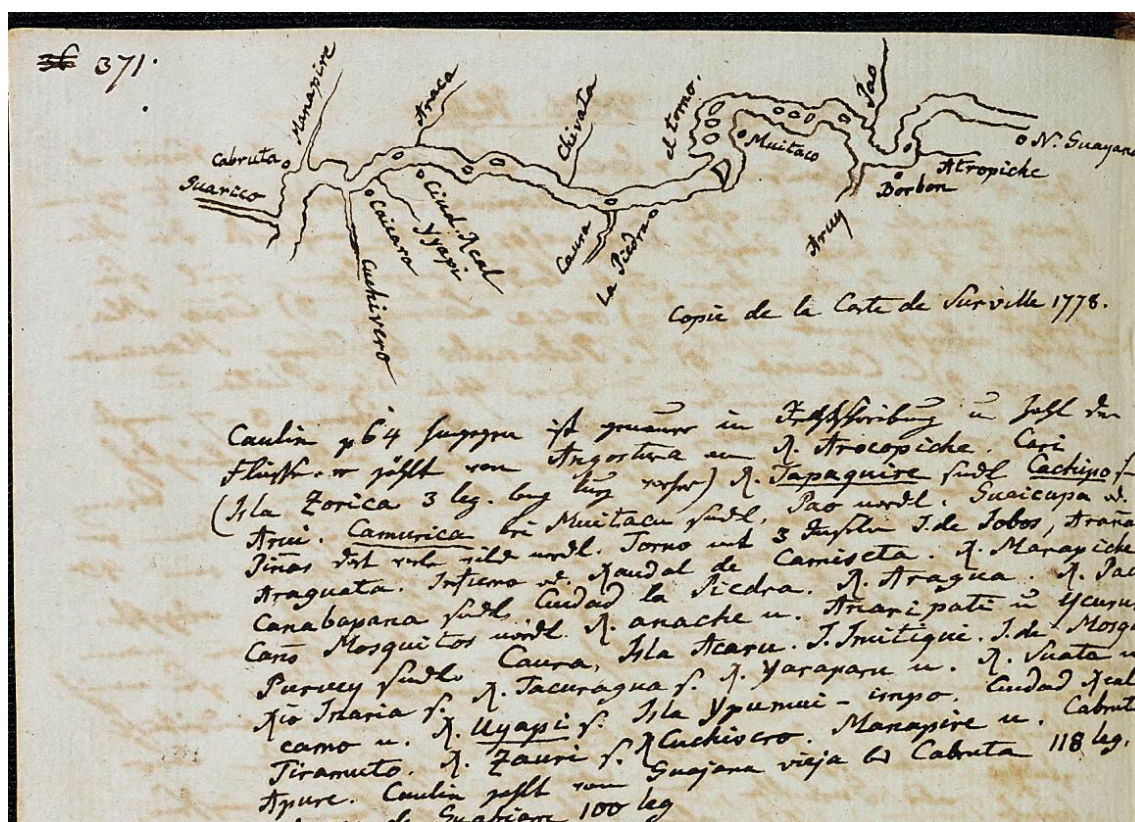 371.
Manapire
Araca
Chivata
el torno.
Pao
Cabruta
Guarico
Caicara
Ciud. Real
Yyapi
Cuchivero
Caura
La Piedra
Muitaco
Aruy
Borbon
Atropiche
N. Guayana
Copie de la Carte de Surville 1778.
Caulin p 64 ist genauer in u Zahl der
Flüsse. er zählt von Angostura an R. Arocopiche. Cari
(Isla Zorica 3 leg. lang) R. Tapaquire südl Cachipo
Arui. Camurica bei Muitacu südl. Pao nördl. Guaicupa
Piñas dort nördl. Torno mit 3 Inseln I. de Lobos,
Araguata. Infierno od. Raudal de Camiseta. R. Manapiche
Canabapana südl. Ciudad la Piedra. R. Aragua. R.
Caño Mosquitos nördl. R anache u. Anaripati u
Purvey südl. Caura, Isla Acaru. I. I. de
Rio Inaria s. R. Tacuragua s. R. Yaraparu u. R. Suata u
camo u. R. Uyapi s. Isla Ypumui - impo. Ciudad Real
Tiramuto. R. Zauri s. R Cuchivero. Manapire u. Cabruta
Apure. Caulin zählt von Guajana vieja bis Cabruta 118 leg.
100 leg